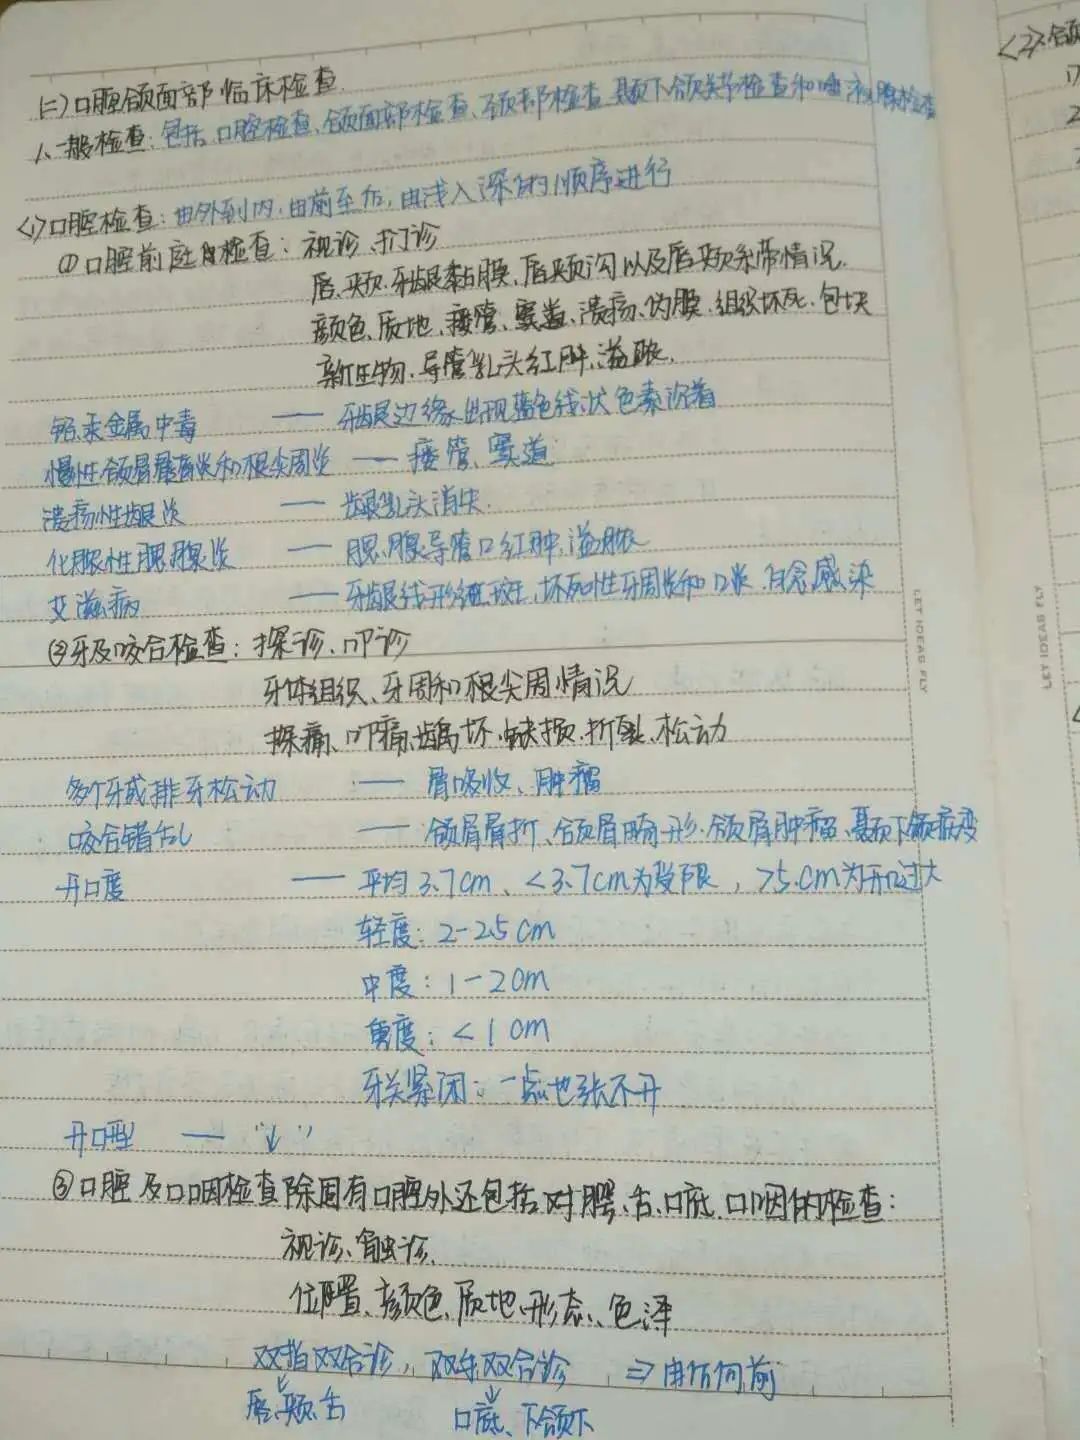 (二)口腔颌面部临床检查
1、一般检查:包括口腔检查、颌面部检查、颈部检查、颞下颌关节检查和唾液腺检查
<1>口腔检查:由外到内、由前至后、由浅入深的顺序进行
①口腔前庭检查:视诊、扪诊
唇、颊、牙龈黏膜、唇颊沟以及唇颊系带情况.
颜色、质地、瘘管、窦道、溃疡、伪膜、组织坏死、包块
新生物、导管乳头红肿、溢脓.
铅汞金属中毒 —— 牙龈边缘出现蓝色线状色素沉着
慢性颌骨骨髓炎和根尖周炎 — 瘘管、窦道
溃疡性龈炎 —— 龈乳头消失.
化脓性腮腺炎 —— 腮腺导管口红肿、溢脓
艾滋病 —— 牙龈线形红斑、坏死性牙周炎和口炎、白念感染
②牙及咬合检查:探诊、叩诊
牙体组织、牙周和根尖周情况
探痛、叩痛、龋坏、缺损、折裂、松动
多个牙或排牙松动 —— 骨吸收、肿瘤
咬合错乱 —— 颌骨骨折、颌骨畸形、颌骨肿瘤、颞下颌病变
开口度 —— 平均3.7cm、<3.7cm为受限,>5cm为开口过大
轻度:2-2.5cm
中度:1-2cm
重度:<1cm
牙关紧闭:一点也张不开
开口型 —— “↓”
③口腔及口咽检查除固有口腔外还包括对腭、舌、口底、口咽的检查:
视诊、触诊、
位置、颜色、质地、形态、色泽
双指双合诊,双手双合诊 ⇒ 由后向前
唇、颊、舌 口底、下颌下
<2>颌
LET IDEAS FLY
LET IDEAS FLY